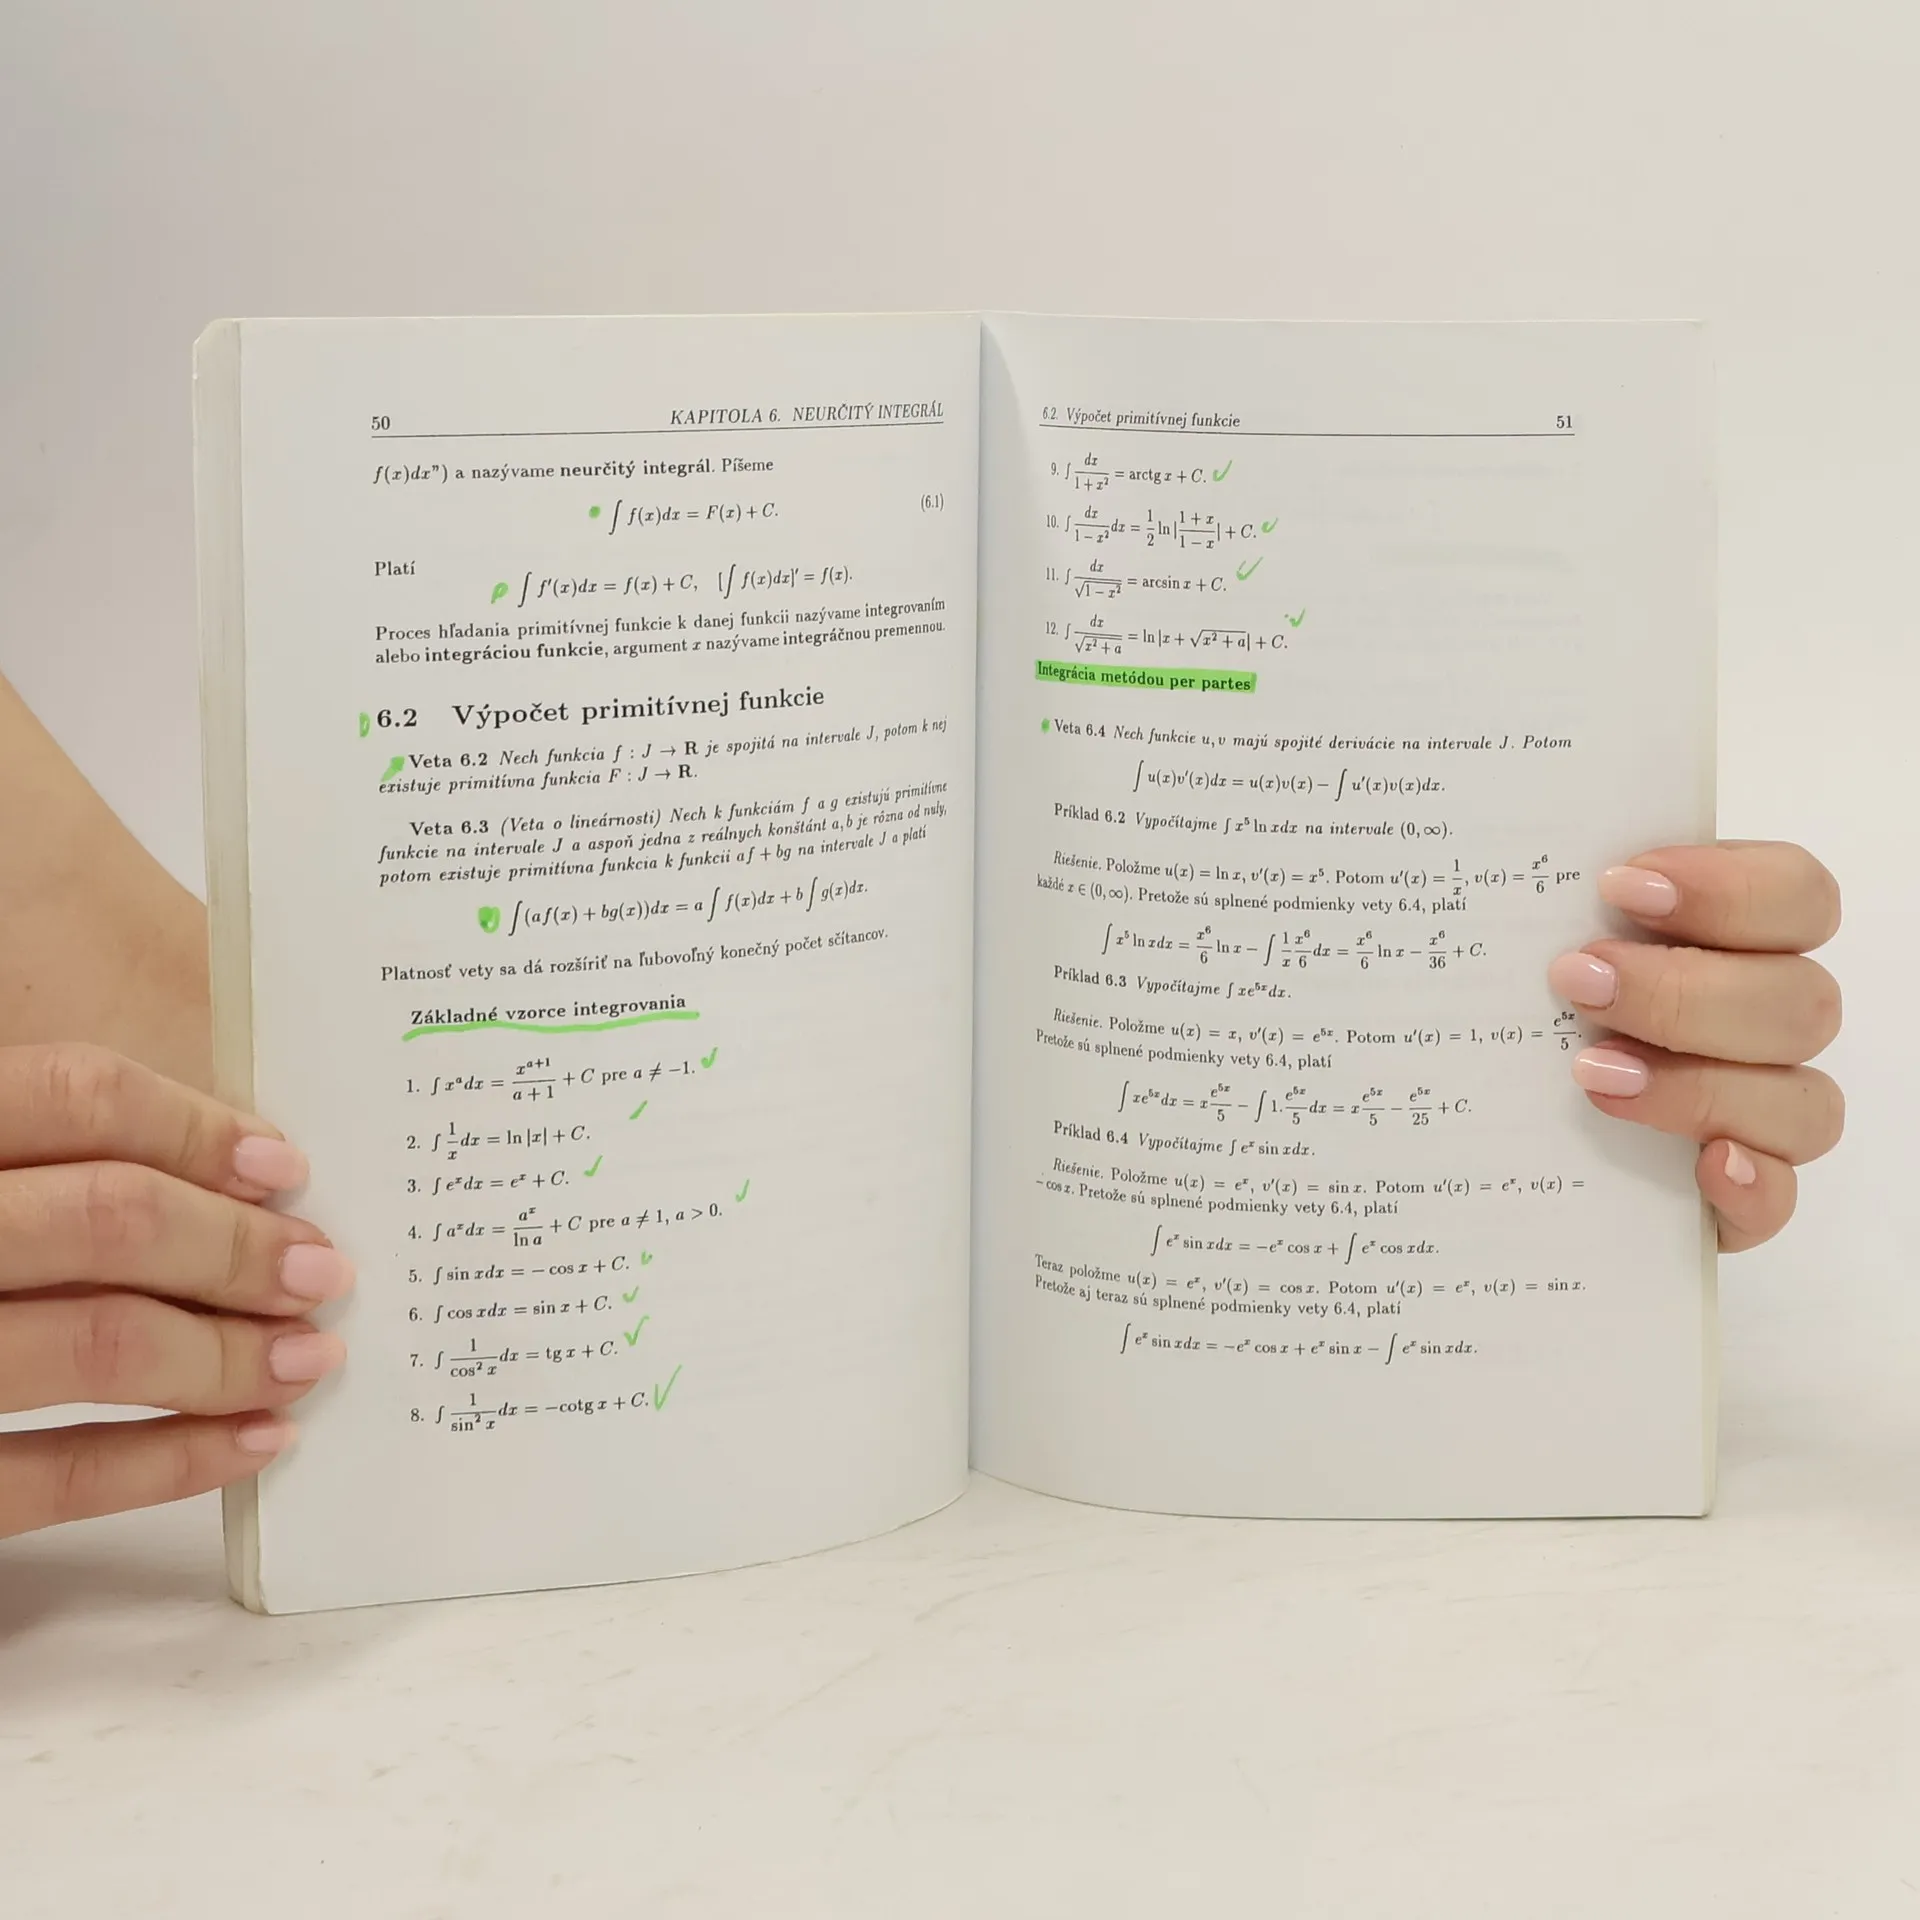 50 KAPITOLA 6. NEURČITÝ INTEGRÁL
f(x)dx") a nazývame neurčitý integrál. Píšeme
∫ f(x)dx = F(x) + C. (6.1)
Platí
∫ f'(x)dx = f(x) + C, [∫ f(x)dx]' = f(x).
Proces hľadania primitívnej funkcie k danej funkcii nazývame integrovaním
alebo integráciou funkcie, argument x nazývame integráčnou premennou.
6.2 Výpočet primitívnej funkcie
Veta 6.2 Nech funkcia f : J → R je spojitá na intervale J, potom k nej
existuje primitívna funkcia F : J → R.
Veta 6.3 (Veta o lineárnosti) Nech k funkciám f a g existujú primitívne
funkcie na intervale J a aspoň jedna z reálnych konštánt a, b je rôzna od nuly,
potom existuje primitívna funkcia k funkcii af + bg na intervale J a platí
∫(af(x) + bg(x))dx = a ∫ f(x)dx + b ∫ g(x)dx.
Platnosť vety sa dá rozšíriť na ľubovoľný konečný počet sčítancov.
Základné vzorce integrovania
1. ∫ x^a dx = x^(a+1)/(a+1) + C pre a ≠ −1.
2. ∫ 1/x dx = ln |x| + C.
3. ∫ e^x dx = e^x + C.
4. ∫ a^x dx = a^x/ln a + C pre a ≠ 1, a > 0.
5. ∫ sin xdx = − cos x + C.
6. ∫ cos xdx = sin x + C.
7. ∫ 1/cos² x dx = tg x + C.
8. ∫ 1/sin² x dx = −cotg x + C.
6.2. Výpočet primitívnej funkcie 51
9. ∫ dx/(1 + x²) = arctg x + C.
10. ∫ dx/(1 − x²) dx = 1/2 ln |(1 + x)/(1 − x)| + C.
11. ∫ dx/√(1 − x²) = arcsin x + C.
12. ∫ dx/√(x² + a) = ln |x + √(x² + a)| + C.
Integrácia metódou per partes
Veta 6.4 Nech funkcie u, v majú spojité derivácie na intervale J. Potom
∫ u(x)v'(x)dx = u(x)v(x) − ∫ u'(x)v(x)dx.
Príklad 6.2 Vypočítajme ∫ x⁵ ln xdx na intervale (0, ∞).
Riešenie. Položme u(x) = ln x, v'(x) = x⁵. Potom u'(x) = 1/x, v(x) = x⁶/6 pre
každé x ∈ (0, ∞). Pretože sú splnené podmienky vety 6.4, platí
∫ x⁵ ln xdx = x⁶/6 ln x − ∫ 1/x x⁶/6 dx = x⁶/6 ln x − x⁶/36 + C.
Príklad 6.3 Vypočítajme ∫ xe^(5x) dx.
Riešenie. Položme u(x) = x, v'(x) = e^(5x). Potom u'(x) = 1, v(x) = e^(5x)/5.
Pretože sú splnené podmienky vety 6.4, platí
∫ xe^(5x) dx = x e^(5x)/5 − ∫ 1. e^(5x)/5 dx = x e^(5x)/5 − e^(5x)/25 + C.
Príklad 6.4 Vypočítajme ∫ e^x sin xdx.
Riešenie. Položme u(x) = e^x, v'(x) = sin x. Potom u'(x) = e^x, v(x) =
− cos x. Pretože sú splnené podmienky vety 6.4, platí
∫ e^x sin xdx = −e^x cos x + ∫ e^x cos xdx.
Teraz položme u(x) = e^x, v'(x) = cos x. Potom u'(x) = e^x, v(x) = sin x.
Pretože aj teraz sú splnené podmienky vety 6.4, platí
∫ e^x sin xdx = −e^x cos x + e^x sin x − ∫ e^x sin xdx.